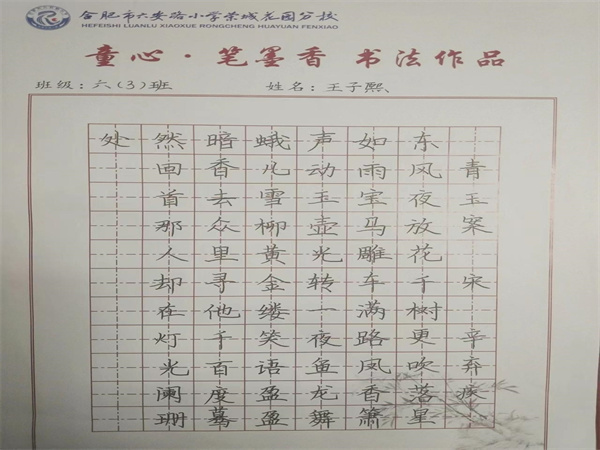 合肥市六安路小学荣城花园分校
HEFEISHI LUANLU XIAOXUE RONGCHENG HUAYUAN FENXIAO
童心·笔墨香 书法作品
班级：六（3）班 姓名：王子熙
青玉案 宋 辛弃疾
东风夜放花千树更吹落星
如雨宝马雕车满路凤香箫
声动玉壶光转一夜鱼龙舞
蛾儿雪柳黄金缕笑语盈盈
暗香去众里寻他千百度蓦
然回首那人却在灯光阑珊
处